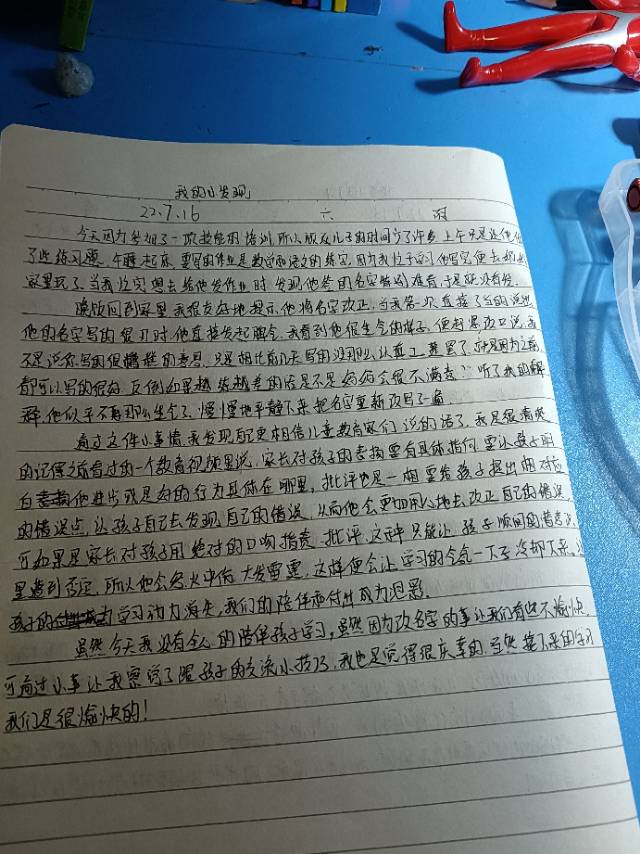 我的小发现
22.7.16 六 雨
今天因为参加了一项技能的培训,所以版在儿子的时间少了许多,上午只是让他做
了些练习题。午睡起床,要写的作业是数学和语文的练字,因为我
家里玩了。当我 想去给他发作业时,发现他签的名字特别难看,于是就没有发。
晚饭回到家里我很友好地提示他将名字改正,当我第一次直接了当的说
他的名字写的很 时,他直接发起脾气,我看到他很生气的样子,便相景改口说,我
不是说你写的很糟糕的意思,只是相比前几天写的没那么认真了
都可以写的很好,反倒如果越练越差的话是不是妈妈会很不满意?”听了我的解
释,他似乎不再那么生气了,慢慢地平静下来把名字重新改写了一遍。
通过这件小事情,我发现自己更相信儿童教育家们说的话了,我是很清楚
的记得之前看过的一个教育视频里说,家长对孩子的表扬要有具体指向,要让孩子明
白 他进步或是好的行为具体在哪里,批评也是一相要给孩子提出相对应
的错误点,让孩子自己去发现自己的错误,从而他会更加用心地去改正自己的错误,
可如果是家长对孩子用绝对的口吻指责、批评,这种只能让孩子瞬间的
里遭到否定,所以他会怒火中伤,大发雷霆,这样便会让学习的气氛一下子冷却下来,让
孩子的学习动力消失,我们的陪伴和付出成为泡影。
虽然今天我没有全心的陪伴孩子学习,虽然因为改名字的事让我们有些不愉快,
可通过小事让我察觉了跟孩子的交流小技巧,我也是觉得很庆幸的,当然接下来的学习
我们是很愉快的!